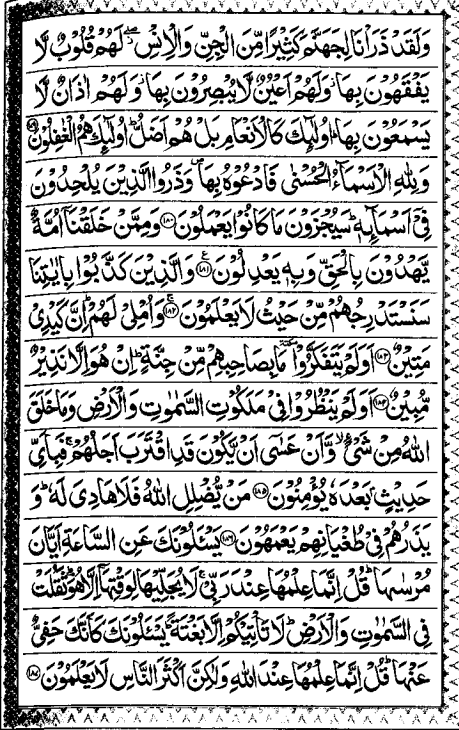 وَلَقَدْ ذَرَاْنَا لِجَهَنَّمَ كَثِيْرًا مِّنَ الْجِنِّ وَالْاِنْسِ ۖ لَهُمْ قُلُوْبٌ لَّا
يَفْقَهُوْنَ بِهَا ۫ وَلَهُمْ اَعْيُنٌ لَّا يُبْصِرُوْنَ بِهَا ۫ وَلَهُمْ اٰذَانٌ لَّا
يَسْمَعُوْنَ بِهَا ؕ اُولٰٓئِكَ كَالْاَنْعَامِ بَلْ هُمْ اَضَلُّ ؕ اُولٰٓئِكَ هُمُ الْغٰفِلُوْنَ ﴿۱۷۹﴾
وَلِلّٰهِ الْاَسْمَآءُ الْحُسْنٰى فَادْعُوْهُ بِهَا ۪ وَذَرُوا الَّذِيْنَ يُلْحِدُوْنَ
فِيْٓ اَسْمَآئِهٖ ؕ سَيُجْزَوْنَ مَا كَانُوْا يَعْمَلُوْنَ ﴿۱۸۰﴾ وَمِمَّنْ خَلَقْنَآ اُمَّةٌ
يَّهْدُوْنَ بِالْحَقِّ وَبِهٖ يَعْدِلُوْنَ ﴿۱۸۱﴾ وَالَّذِيْنَ كَذَّبُوْا بِاٰيٰتِنَا
سَنَسْتَدْرِجُهُمْ مِّنْ حَيْثُ لَا يَعْلَمُوْنَ ﴿۱۸۲﴾ وَاُمْلِيْ لَهُمْ ؕ اِنَّ كَيْدِيْ
مَتِيْنٌ ﴿۱۸۳﴾ اَوَلَمْ يَتَفَكَّرُوْا ٚ مَا بِصَاحِبِهِمْ مِّنْ جِنَّةٍ ؕ اِنْ هُوَ اِلَّا نَذِيْرٌ
مُّبِيْنٌ ﴿۱۸۴﴾ اَوَلَمْ يَنْظُرُوْا فِيْ مَلَكُوْتِ السَّمٰوٰتِ وَالْاَرْضِ وَمَا خَلَقَ
اللّٰهُ مِنْ شَيْءٍ ۙ وَّاَنْ عَسٰٓى اَنْ يَّكُوْنَ قَدِ اقْتَرَبَ اَجَلُهُمْ ۚ فَبِاَيِّ
حَدِيْثٍۭ بَعْدَهٗ يُؤْمِنُوْنَ ﴿۱۸۵﴾ مَنْ يُّضْلِلِ اللّٰهُ فَلَا هَادِيَ لَهٗ ؕ وَ
يَذَرُهُمْ فِيْ طُغْيَانِهِمْ يَعْمَهُوْنَ ﴿۱۸۶﴾ يَسْـَٔلُوْنَكَ عَنِ السَّاعَةِ اَيَّانَ
مُرْسٰىهَا ؕ قُلْ اِنَّمَا عِلْمُهَا عِنْدَ رَبِّيْ ۚ لَا يُجَلِّيْهَا لِوَقْتِهَآ اِلَّا هُوَ ؔؕ ثَقُلَتْ
فِي السَّمٰوٰتِ وَالْاَرْضِ ؕ لَا تَاْتِيْكُمْ اِلَّا بَغْتَةً ؕ يَسْـَٔلُوْنَكَ كَاَنَّكَ حَفِيٌّ
عَنْهَا ؕ قُلْ اِنَّمَا عِلْمُهَا عِنْدَ اللّٰهِ وَلٰكِنَّ اَكْثَرَ النَّاسِ لَا يَعْلَمُوْنَ ﴿۱۸۷﴾